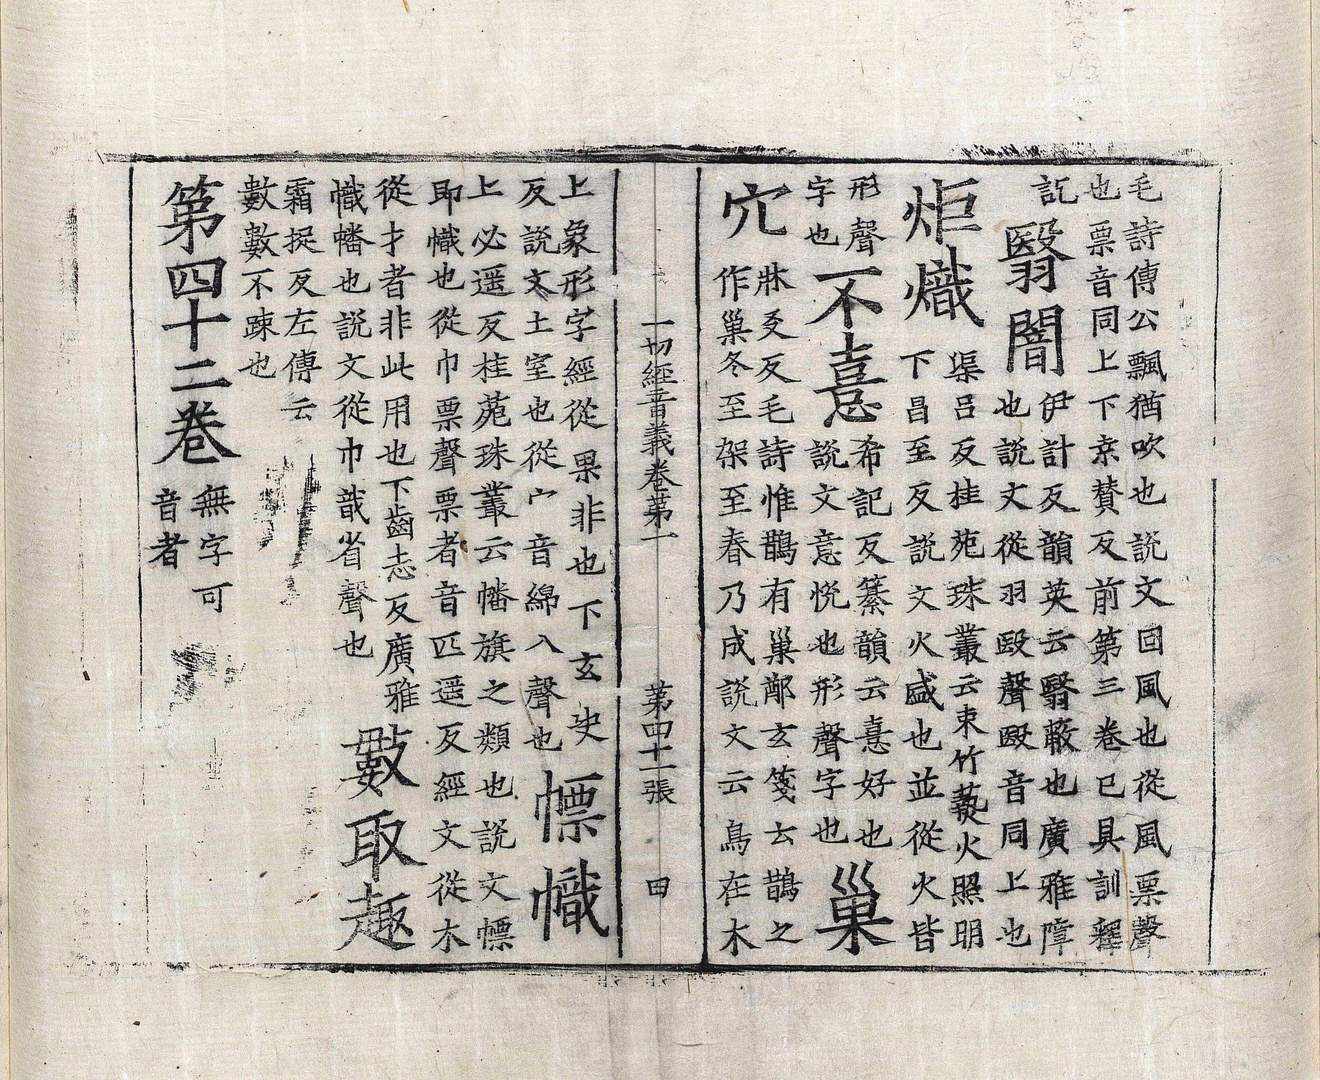 毛詩傳公飄猶吹也說文回風也從風票聲
也票音同上下京贊反前第三卷已具訓釋
訖
翳闇
伊計反韻英云翳蔽也廣雅障
也說文從羽殹聲殹音同上也
炬熾
渠呂反桂苑珠叢云束竹爇火照明
下昌至反說文火盛也並從火皆
形聲
字也
不憙
希記反纂韻云憙好也
說文憙悅也形聲字也
巢
穴
牀爻反毛詩惟鵲有巢鄭玄箋云鵲之
作巢冬至架至春乃成說文云鳥在木
一切經音義卷第一 第四十一張 田
上象形字經從果非也下玄
反說文土室也從宀音綿入聲也
幖幟
上必遥反桂菀珠叢云幡旗之類也說文幖
即幟也從巾票聲票者音匹遥反經文從木
從才者非此用也下齒志反廣雅
幟幡也說文從巾戠省聲也
數取趣
霜捉反左傳云
數數不踈也
第四十二卷
無字可
音者